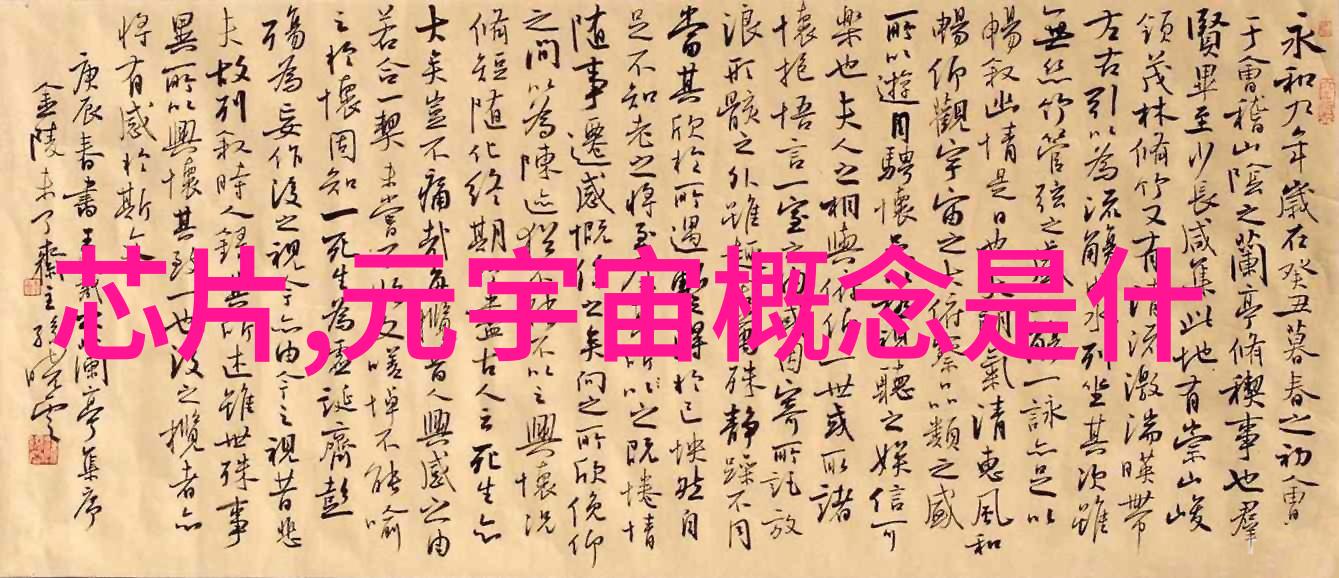 永和九年歲在癸丑暮春之初會
于會稽山陰之蘭亭脩稧事也羣
賢畢至少長咸集此地有崇山峻
領茂林脩竹又有清流激湍暎帶
左右引以為流觴曲水列坐其次雖
無絲竹管弦之盛一詠亦足以
暢叙幽情是日也天朗氣清惠風和
暢仰觀宇宙之大俯察品類之盛
所以遊目騁懷足以極視聽之娛信可
樂也夫人之相與俯仰一世或取諸
懷抱悟言一室之內或因寄所託放
浪形骸之外雖趣萬殊靜躁不同
當其欣於所遇暫得於己怏然自
足不知老之將至及其所之既惓情
随事遷感慨係之矣向之所欣俛仰
之間以為陳迹猶不能不以之興懷況
脩短随化終期於盡古人云死生亦
大矣豈不痛哉每攬昔人興感之由
若合一契未嘗不臨文嗟悼不能喻
之於懷固知一死生為虛誕齊彭
殤為妄作後之視今亦由今之視昔悲
夫故列叙時人錄其所述雖世殊事
異所以興懷其致一也後之攬者亦
將有感於斯文
庚辰春書王羲之蘭亭集序
金陵未了齋主孫曉雲
芯片,元宇宙概念是什